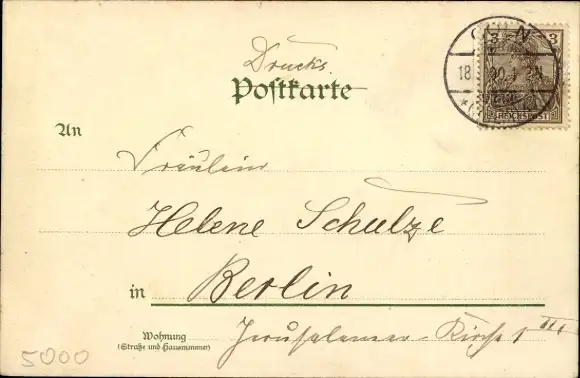 Drucks.
Postkarte
3 3
REICHSPOST
An
Fräulein
Helene Schulze
in Berlin
Wohnung
(Straße und Hausnummer)
Jerusalemer-Kirche 1 III
5000